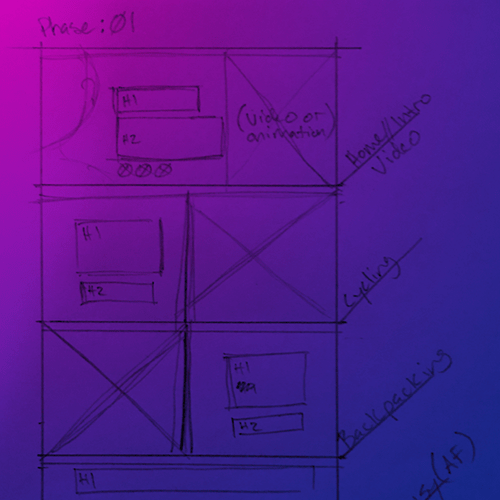 Phase: 01
H1
H2
(video or
animation)
Home/Intro
Video
H1
H2
Cycling
H1
H2
Backpacking
H1
(AF)